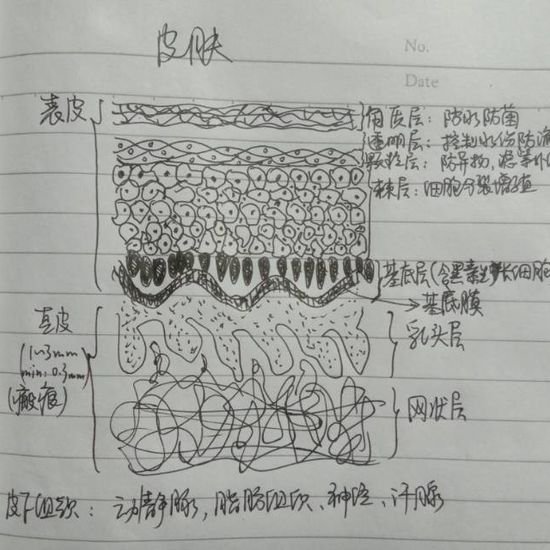 皮肤
No.
Date
表皮
角质层：防水防菌
透明层：控制水份防
颗粒层：防异物，滤紫外
棘层：细胞分裂增殖
基底层（含黑素细胞
基底膜
真皮
(1~3mm
min:0.3mm)
(瘢痕)
乳头层
网状层
皮下组织：动静脉，脂肪组织、神经、汗腺